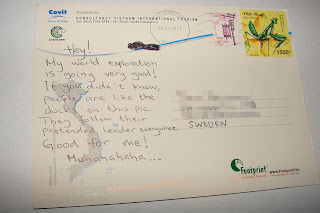 Covit
CONSULTANCY VIETNAM INTERNATIONAL TOURISM
Hey!
My world exploration
is going very good!
If you didn't know,
people are like the
ducks on this pic.
They follow their
pretended leader everywhere.
Good for me!
Muhahahaha...
SWEDEN
1500đ
Footprint
www.Footprint.Vn